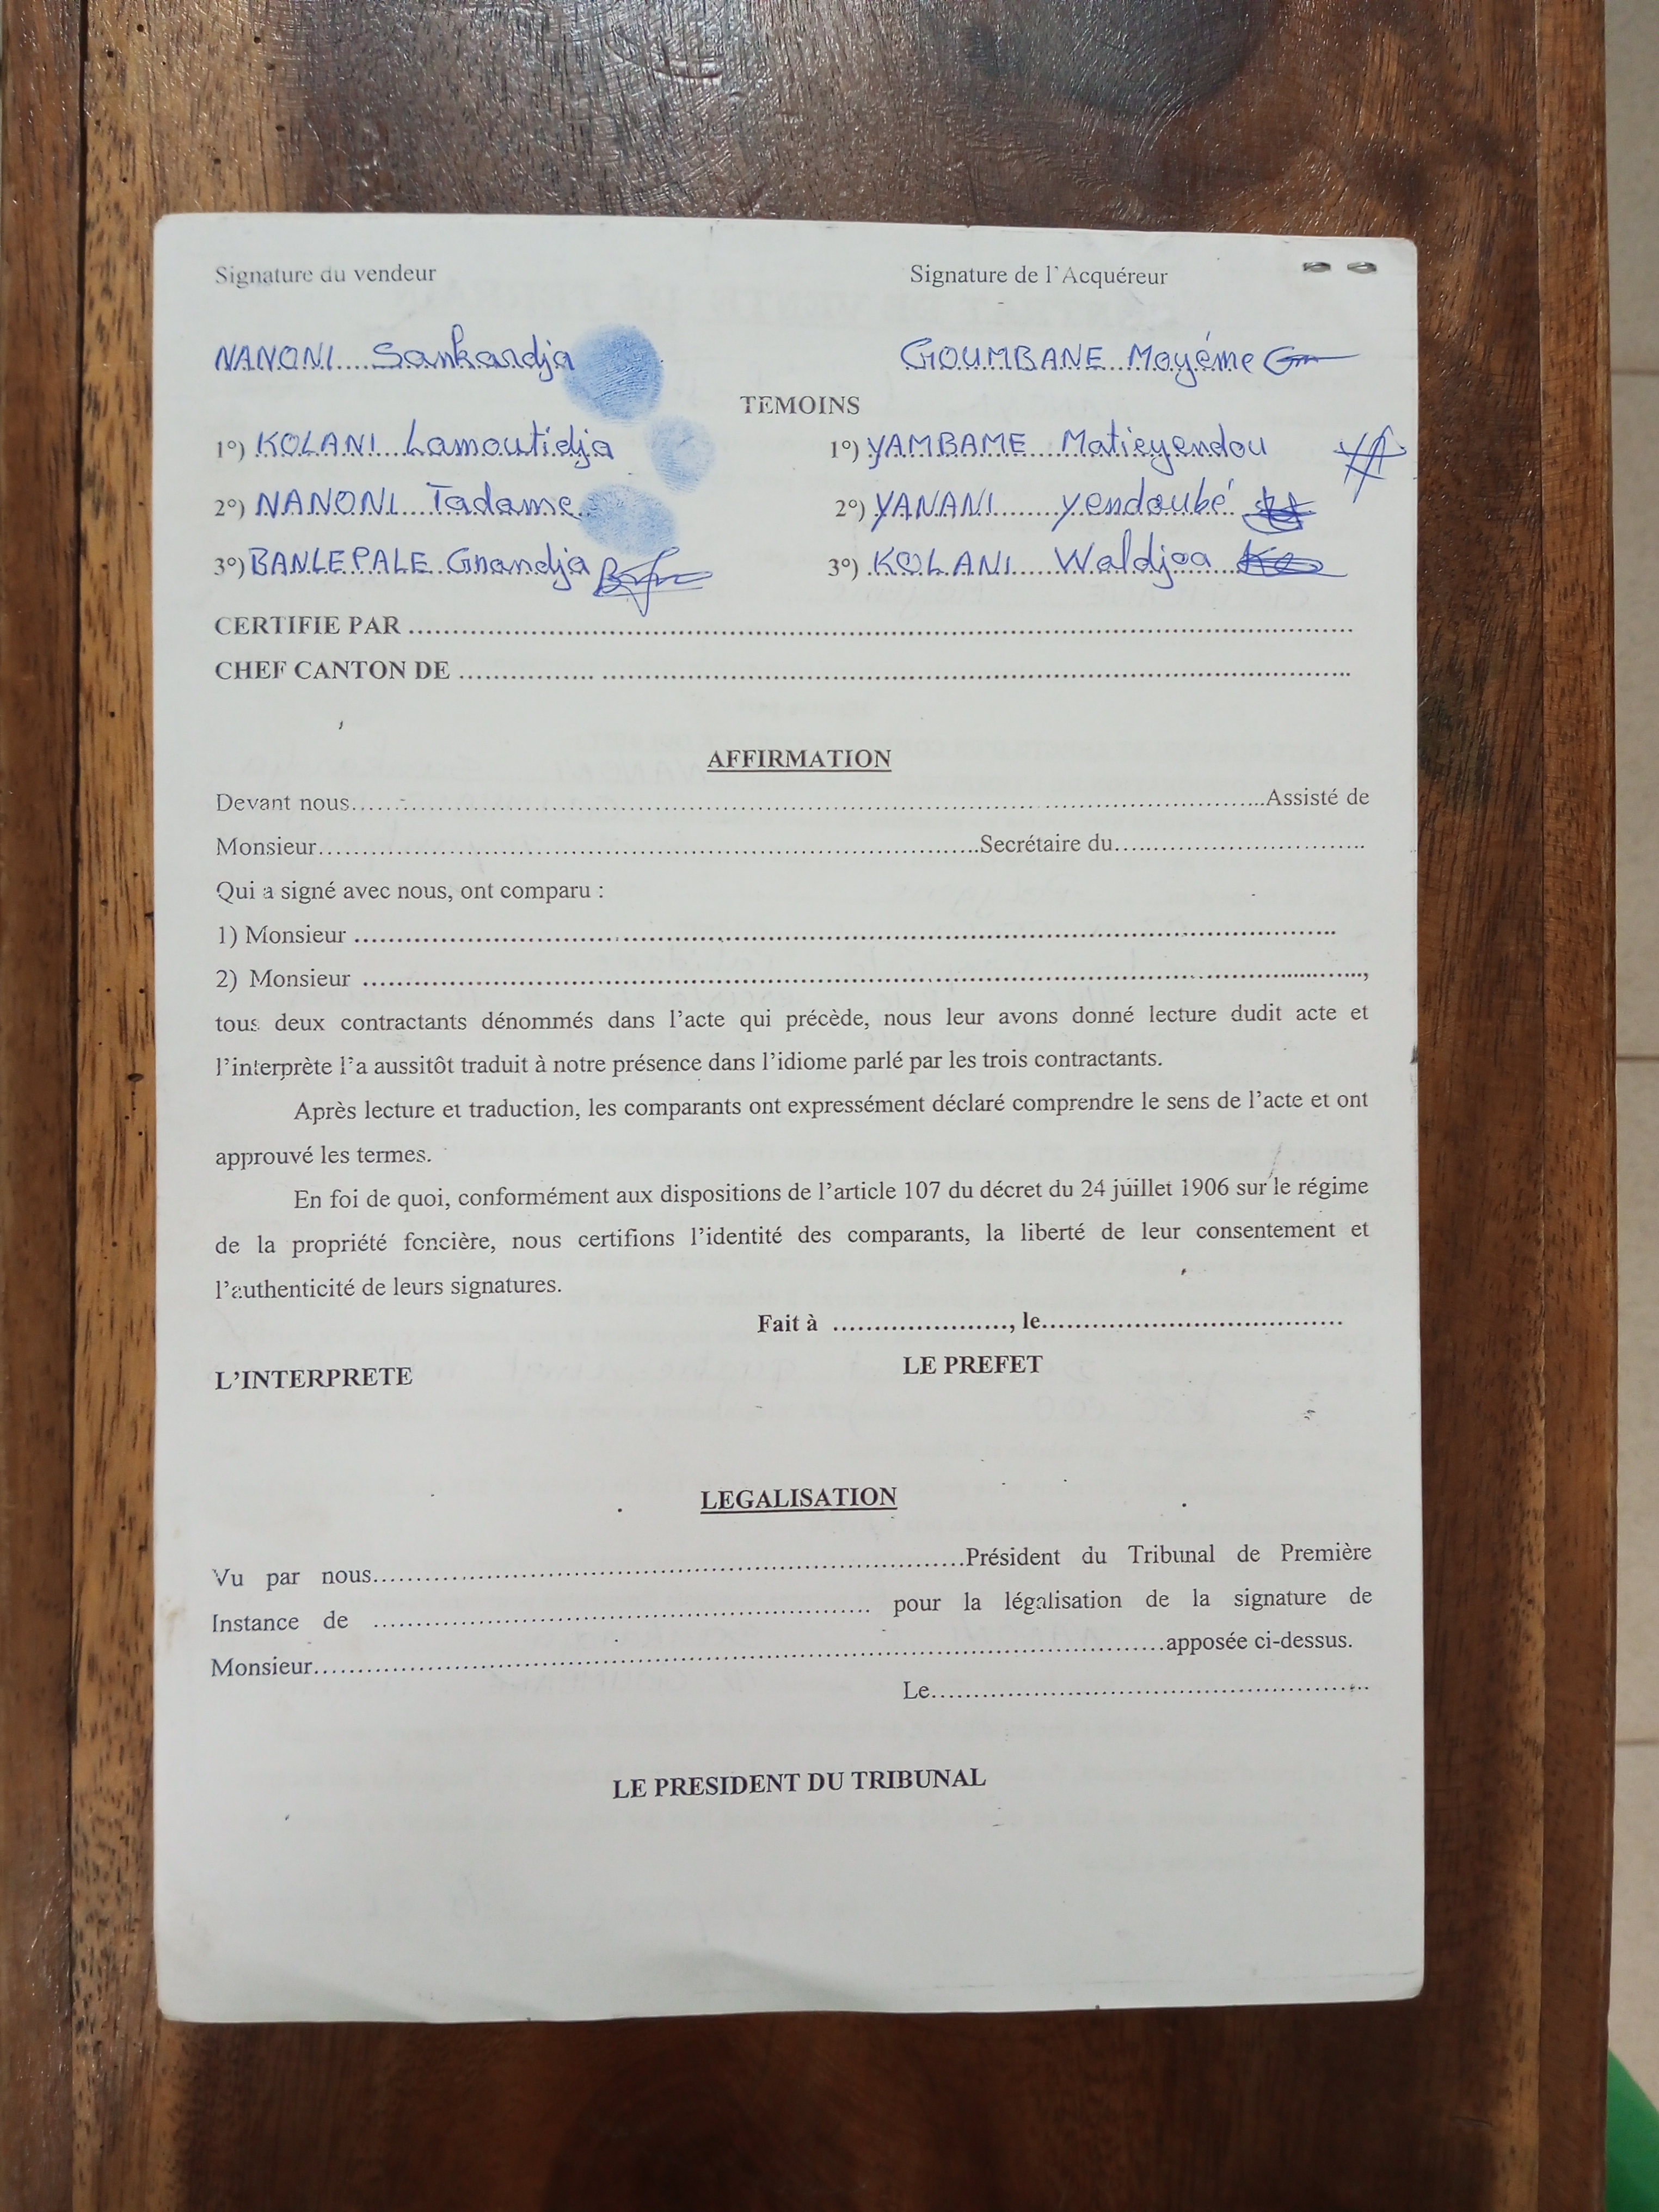 Signature du vendeur Signature de l'Acquéreur
NANONI....Sankardja GOUMBANE Moyéme
TEMOINS
1°) KOLANI Lamoutidja 1°) YAMBAME Matieyendou
2°) NANONI Tadame 2°) YANANI yendoubé
3°) BANLEPALE Gnandja 3°) KOLANI Waldjoa
CERTIFIE PAR ..........................................................................................................
CHEF CANTON DE ................ ...................................................................................
AFFIRMATION
Devant nous..........................................................................................................Assisté de
Monsieur..............................................................................Secrétaire du..............................
Qui a signé avec nous, ont comparu :
1) Monsieur ..................................................................................................................
2) Monsieur ..................................................................................................................,
tous deux contractants dénommés dans l'acte qui précède, nous leur avons donné lecture dudit acte et
l'interprète l'a aussitôt traduit à notre présence dans l'idiome parlé par les trois contractants.
Après lecture et traduction, les comparants ont expressément déclaré comprendre le sens de l'acte et ont
approuvé les termes.
En foi de quoi, conformément aux dispositions de l'article 107 du décret du 24 juillet 1906 sur le régime
de la propriété foncière, nous certifions l'identité des comparants, la liberté de leur consentement et
l'authenticité de leurs signatures.
Fait à ....................., le...................................
L'INTERPRETE LE PREFET
LEGALISATION
Vu par nous......................................................................Président du Tribunal de Première
Instance de ............................................................ pour la légalisation de la signature de
Monsieur....................................................................................................apposée ci-dessus.
Le....................................................
LE PRESIDENT DU TRIBUNAL